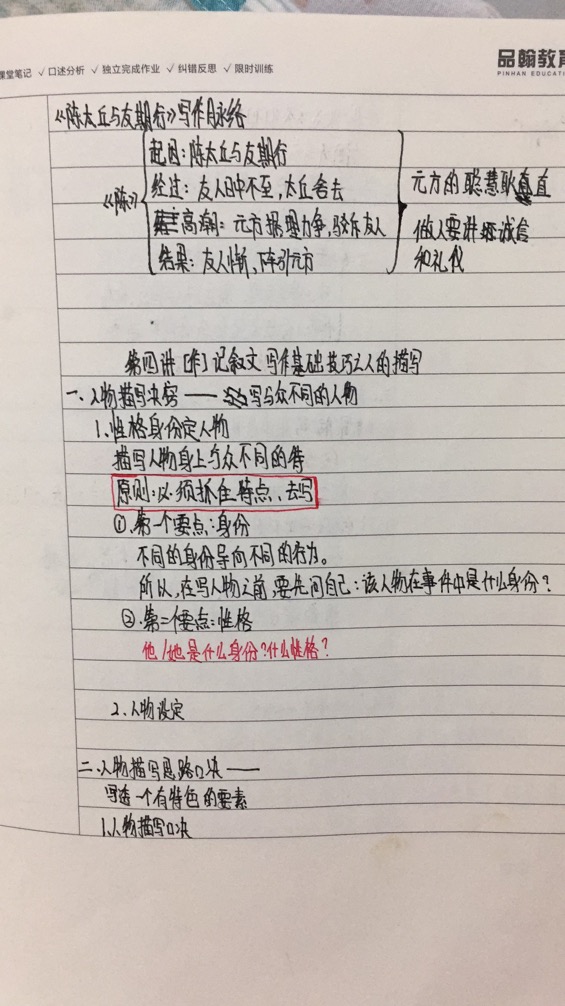 课堂笔记 ✓口述分析 ✓独立完成作业 ✓纠错反思 ✓限时训练
品翰教育
PINHAN EDUCAT
《陈太丘与友期行》写作脉络
《陈》
起因:陈太丘与友期行
经过:友人日中不至,太丘舍去
高潮:元方据理力争,驳斥友人
结果:友人惭,下车引元方
元方的聪慧耿直
做人要讲诚信
和礼仪
第四讲[作]记叙文写作基础技巧之人的描写
一、人物描写决窍——写与众不同的人物
1.性格身份定人物
描写人物身上与众不同的特
原则:必须抓住特点、去写
①.第一个要点:身份
不同的身份导向不同的行为。
所以,在写人物之前,要先问自己:该人物在事件中是什么身份?
②.第二个要点:性格
他/她是什么身份?什么性格?
2.人物设定
二.人物描写思路口决——
写透一个有特色的要素
1.人物描写口决